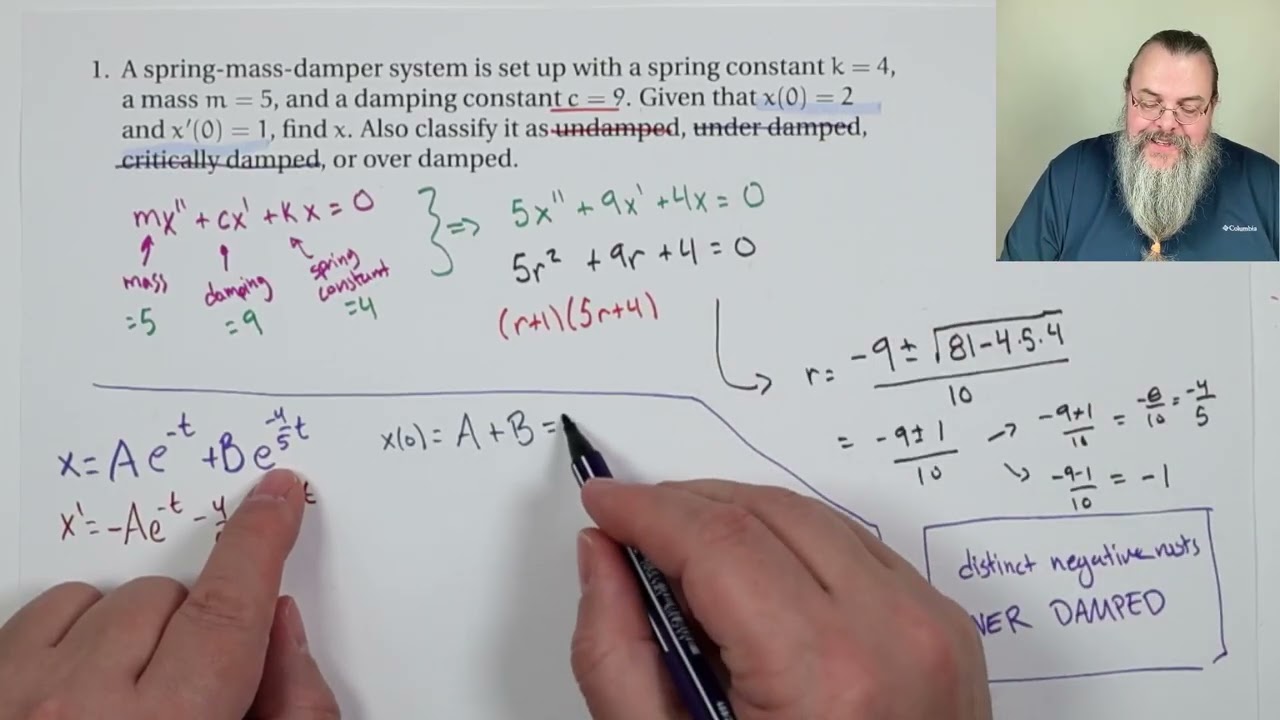 1. A spring-mass-damper system is set up with a spring constant k = 4,
a mass m = 5, and a damping constant c = 9. Given that x(0) = 2
and x′(0) = 1, find x. Also classify it as undamped, under damped,
critically damped, or over damped.
mx'' + cx' + kx = 0
mass
= 5
damping
= 9
spring
constant
= 4
} => 5x'' + 9x' + 4x = 0
5r² + 9r + 4 = 0
(r+1)(5r+4)
r = -9 ± √81 - 4·5·4
10
= -9 ± 1
10
-9+1
10
= -8
10
= -4
5
-9-1
10
= -1
distinct negative roots
VER DAMPED
x = Ae^-t + Be^-4/5 t
x' = -Ae^-t - 4
t
x(0) = A + B =
Columbia